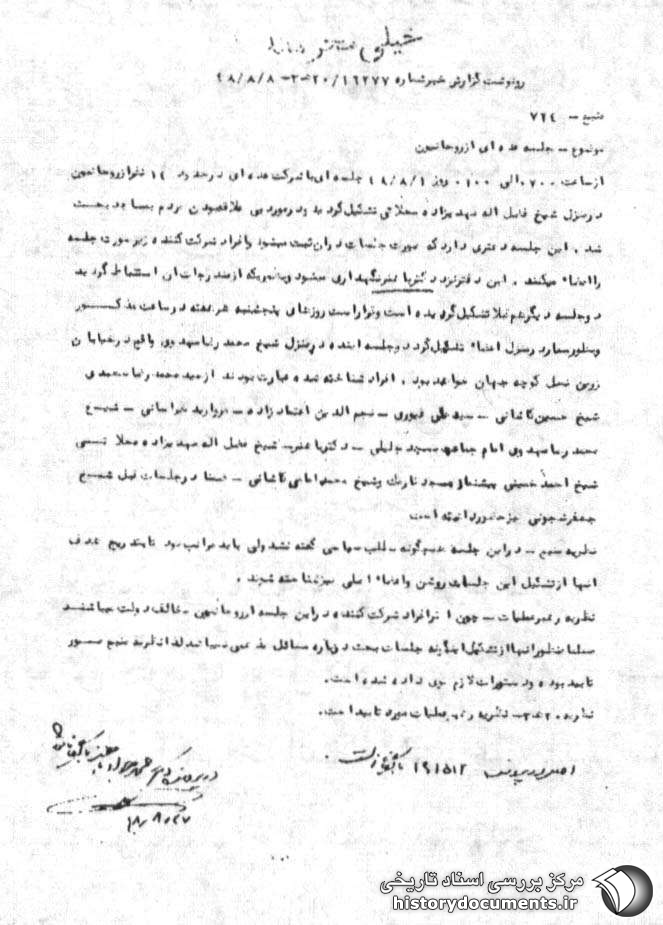 خیلی
رونوشت گزارش خبر شماره ۱۶۲۷۷/ ۲۰-۳- ۴۸/۸/۸
منبع - ۷۲۴
موضوع - جلسه عده ای از روحانیون
از ساعت ۷۰۰. الی ۱۰۰. روز ۴۸/۸/۱ جلسه ای با شرکت عده ای در حدود ۱۴ نفر از روحانیون
در منزل شیخ فضل اله مهدیزاده محلاتی تشکیل گردید و در مورد بی علاقه بودن مردم بمساجد بحث
شد. این جلسه دفتری دارد که صورت جلسات در آن ثبت میشود و افراد شرکت کننده زیر صورت جلسه
را امضاء میکنند. این دفتر نزد دکتر باهنر نگهداری میشود و بطوریکه از مندرجات آن استنباط گردید
دو جلسه دیگر هم قبلا تشکیل گردیده است و قرار است روزهای پنجشنبه هر هفته در ساعت مذکور
و بطور سیار در منزل اعضاء تشکیل گردد و جلسه آینده در منزل شیخ محمد رضا مهدوی واقع در خیابان
کوچه جهان خواهد بود. افراد شناخته شده عبارت بودند از سید محمد رضا سعیدی
شیخ حسین کاشانی - سید علی غیوری - نجم الدین اعتمادزاده - مروارید خراسانی - شیخ
محمد رضا مهدوی امام جماعت مسجد جلیلی - دکتر باهنر - شیخ فضل اله مهدیزاده محلاتی
شیخ احمد پیشنماز مسجد نارمک و شیخ محمد امامی کاشانی - ضمنا در جلسات قبل شیخ
جعفر شجونی نیز حضور داشته است
نظریه منبع - در این جلسه هیچگونه مطلب سیاسی گفته نشد ولی باید مراقب بود تا بتدریج هدف
آنها از تشکیل این جلسات روشن و اعضاء اصلی نیز شناخته شوند.
نظریه رهبر عملیات - چون اکثر افراد شرکت کننده در این جلسه از روحانیون مخالف دولت میباشند
مسلما منظور آنها از تشکیل اینگونه جلسات بحث درباره مسائل مذهبی نمیباشد لذا نظریه منبع مورد
تایید بوده و دستورات لازم بوی داده شده است.
نظریه ۲۰ه۳ نظریه رهبر عملیات مورد تایید است.
اصل در پرونده ۱۹۱۵۱۲ بایگانی است.
در پرونده محمد جواد باهنر بایگانی
۴۸/۸/۲۷
مرکز بررسی اسناد تاریخی
historydocuments.ir